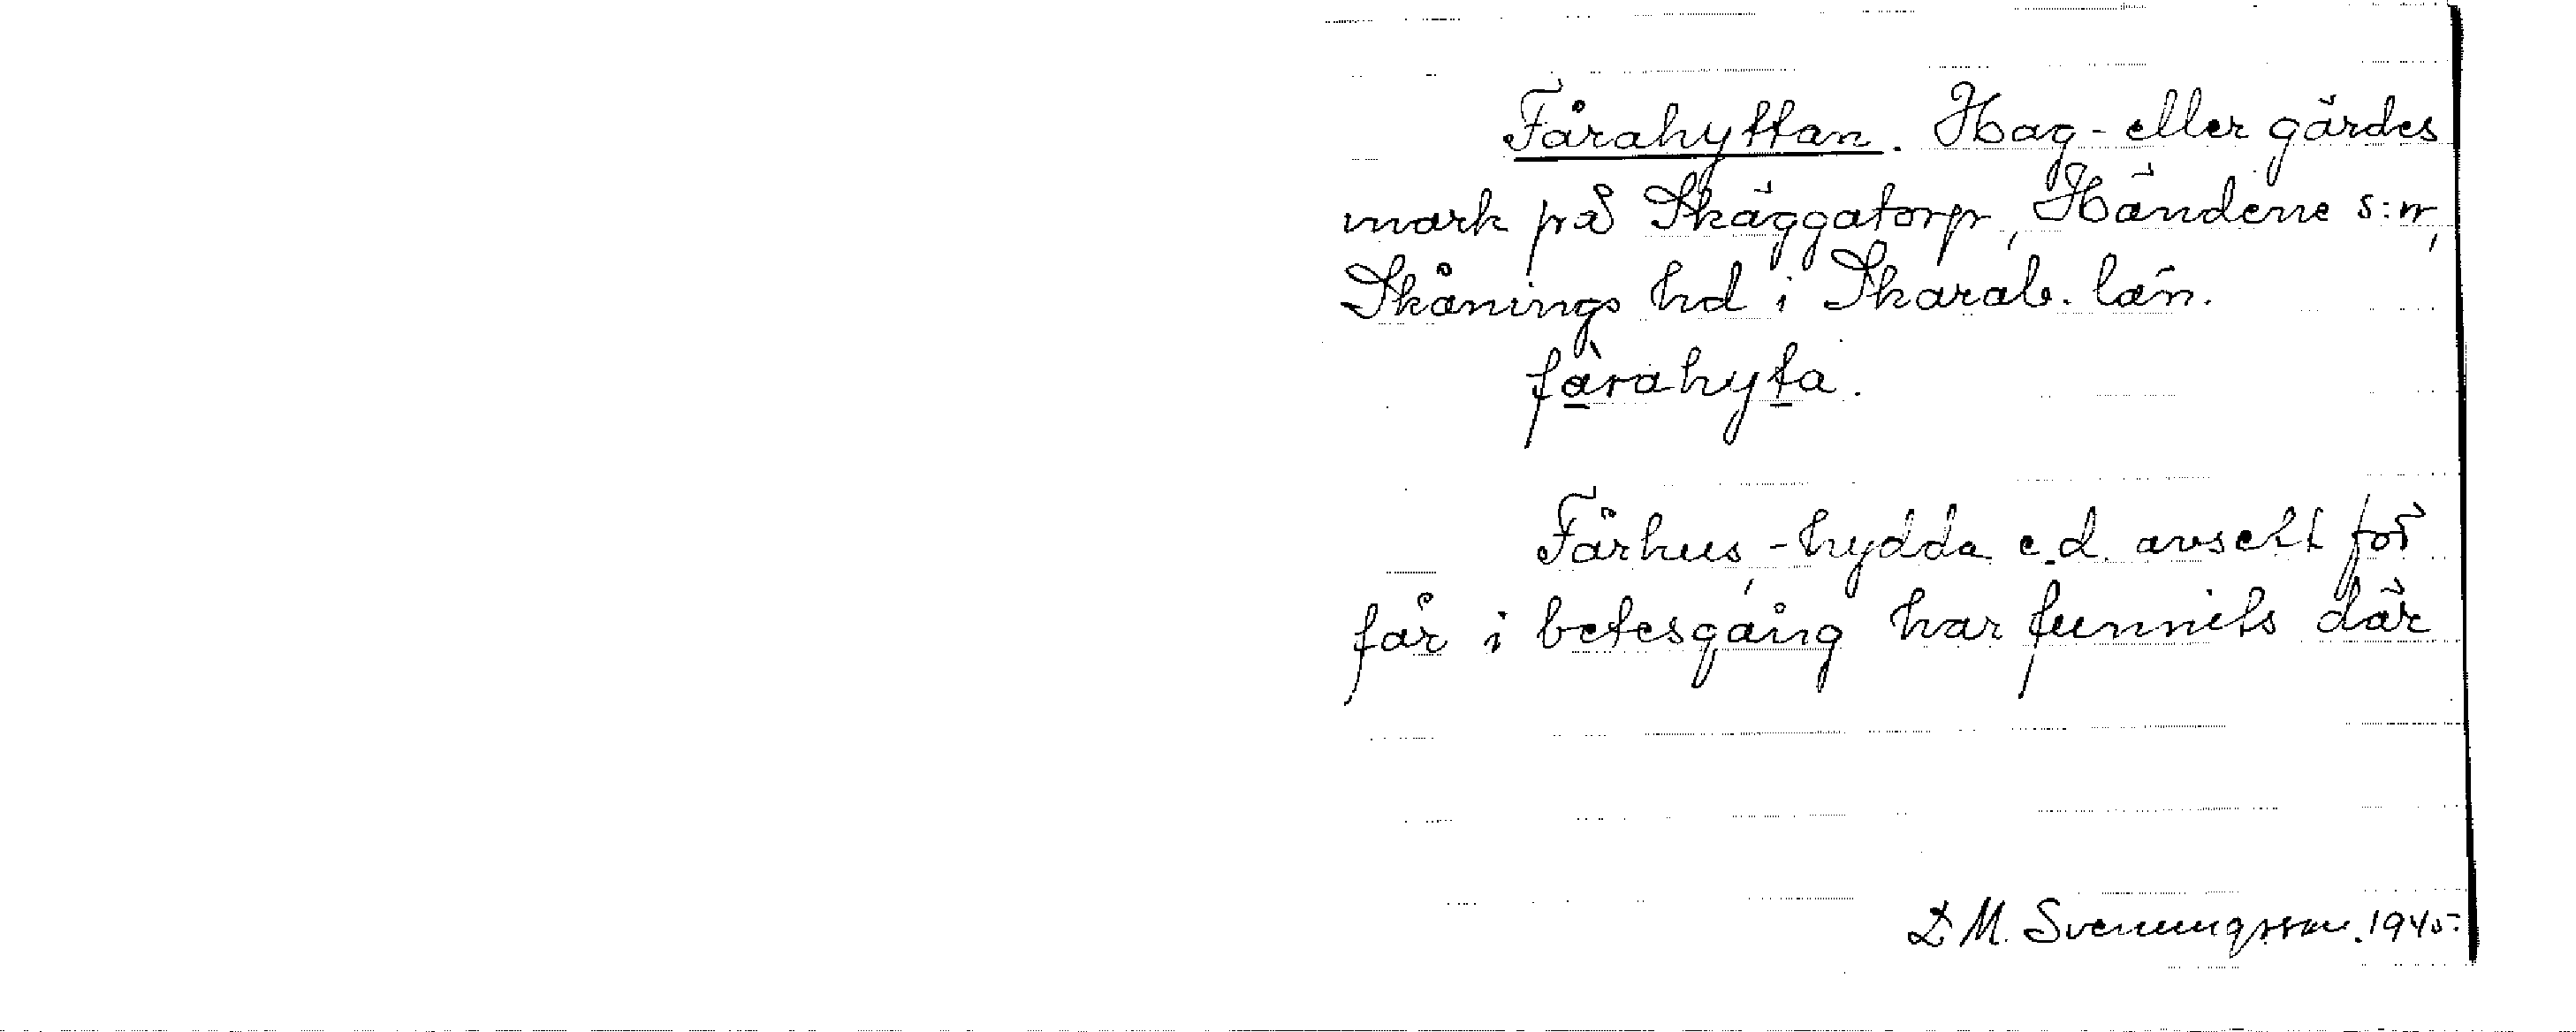 Fårahyttan. Hag- eller gärdes
mark på Skäggatorp, Händene s:n,
Skånings hd i Skarab. län.
fàrahyta.
Fårhus, -hydda e.d. avsett för
får i betesgång har funnits där
D M. Svenungsson. 1945.